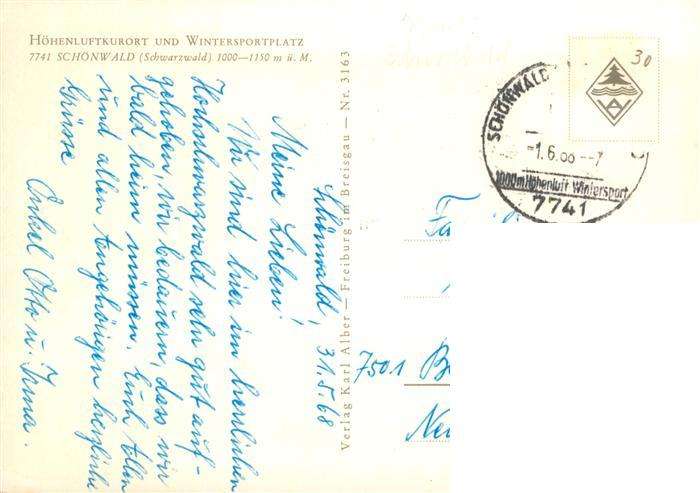 HÖHENLUFTKURORT UND WINTERSPORTPLATZ
7741 SCHÖNWALD (Schwarzwald) 1000—1150 m ü. M.
Schönwald, 31.5.68
Meine Lieben!
Wir sind hier im herrlichen
Hochschwarzwald sehr gut auf-
gehoben, wir bedauern, dass wir
bald heim müssen. Euch Allen
und allen Angehörigen herzliche
Grüsse
Onkel Otto u. Irma.
Verlag Karl Alber — Freiburg im Breisgau — Nr. 3163
30
SCHÖNWALD
-1.6.68--7
1000m Höhenluft Wintersport
7741
7501